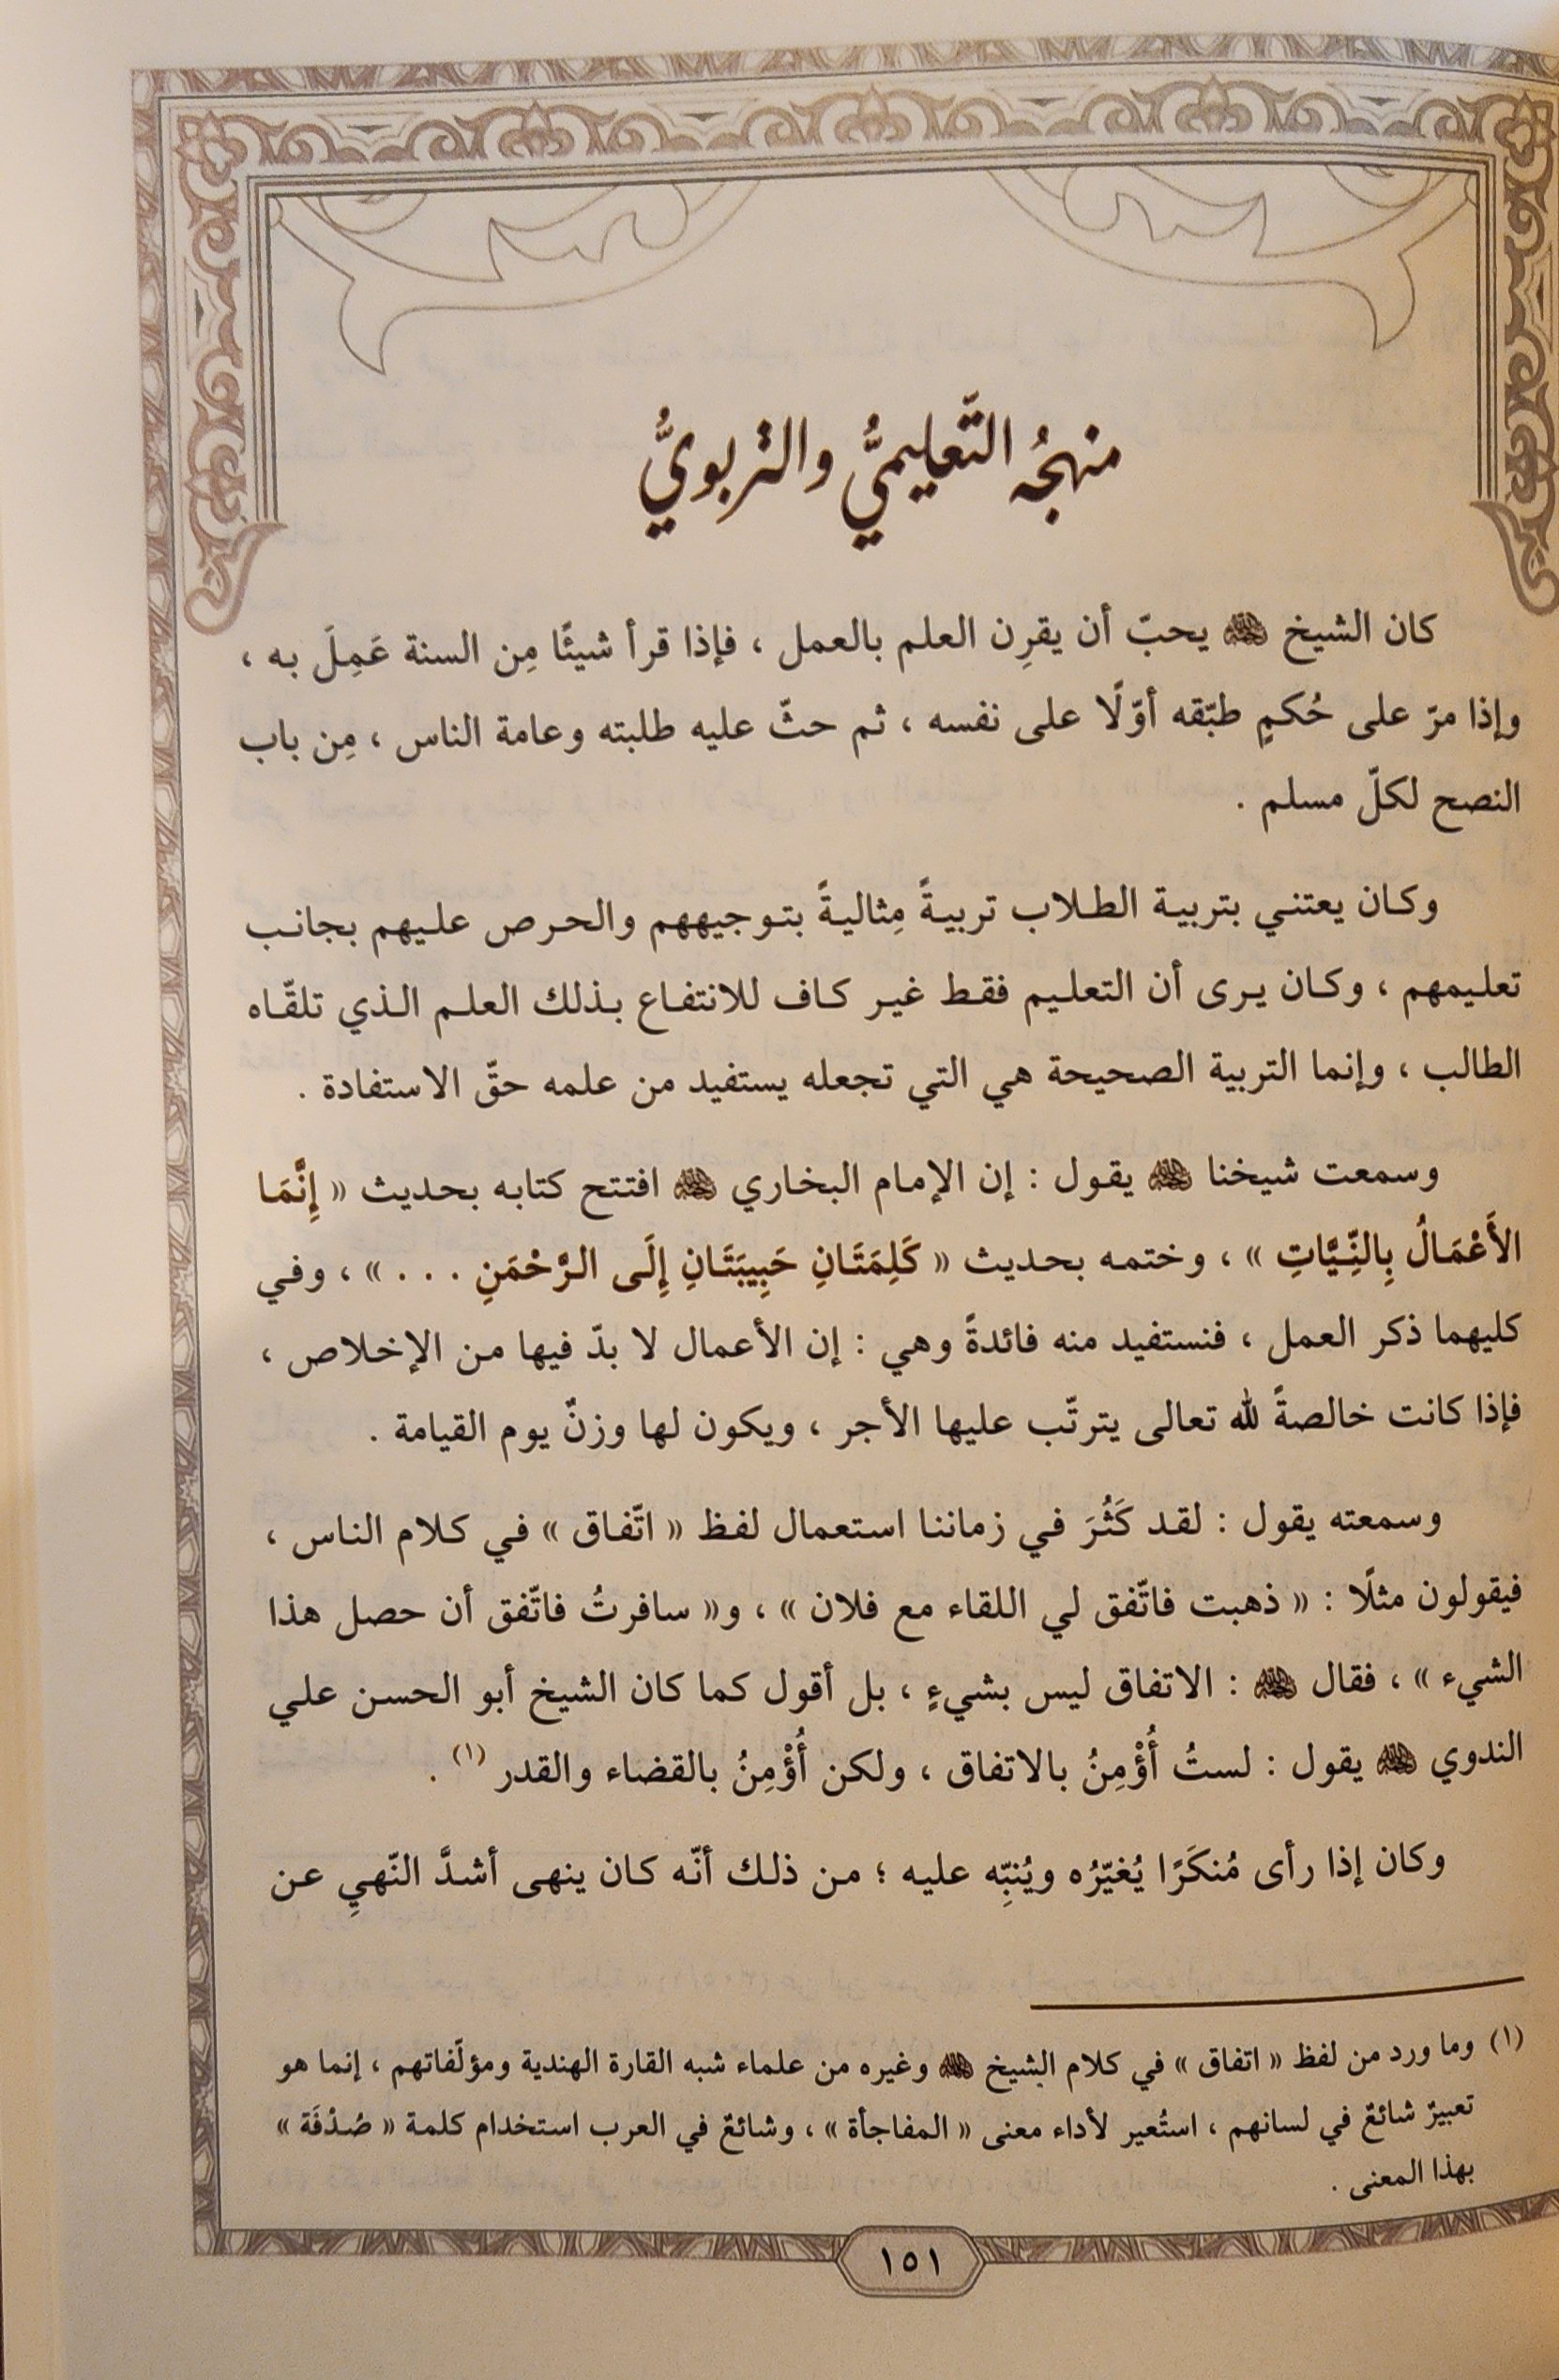 منهجُه التّعليميُّ والتربويُّ
كان الشيخ ﵀ يحبّ أن يقرِن العلم بالعمل ، فإذا قرأ شيئًا مِن السنة عَمِلَ به ،
وإذا مرّ على حُكمٍ طبّقه أوّلًا على نفسه ، ثم حثّ عليه طلبته وعامة الناس ، مِن باب
النصح لكلّ مسلم .
وكان يعتني بتربية الطلاب تربيةً مِثاليةً بتوجيههم والحرص عليهم بجانب
تعليمهم ، وكان يرى أن التعليم فقط غير كاف للانتفاع بذلك العلم الذي تلقّاه
الطالب ، وإنما التربية الصحيحة هي التي تجعله يستفيد من علمه حقّ الاستفادة .
وسمعت شيخنا ﵀ يقول : إن الإمام البخاري ﵀ افتتح كتابه بحديث « إِنَّمَا
الأَعْمَالُ بِالنِّيَّاتِ » ، وختمه بحديث « كَلِمَتَانِ حَبِيبَتَانِ إِلَى الرَّحْمَنِ . . . » ، وفي
كليهما ذكر العمل ، فنستفيد منه فائدةً وهي : إن الأعمال لا بدّ فيها من الإخلاص ،
فإذا كانت خالصةً لله تعالى يترتّب عليها الأجر ، ويكون لها وزنٌ يوم القيامة .
وسمعته يقول : لقد كَثُرَ في زماننا استعمال لفظ « اتّفاق » في كلام الناس ،
فيقولون مثلًا : « ذهبت فاتّفق لي اللقاء مع فلان » ، و« سافرتُ فاتّفق أن حصل هذا
الشيء » ، فقال ﵀ : الاتفاق ليس بشيءٍ ، بل أقول كما كان الشيخ أبو الحسن علي
الندوي ﵀ يقول : لستُ أُؤْمِنُ بالاتفاق ، ولكن أُؤْمِنُ بالقضاء والقدر (١) .
وكان إذا رأى مُنكَرًا يُغيّرُه ويُنبِّه عليه ؛ من ذلك أنّه كان ينهى أشدَّ النّهيِ عن
(١) وما ورد من لفظ « اتفاق » في كلام الشيخ ﵀ وغيره من علماء شبه القارة الهندية ومؤلّفاتهم ، إنما هو
تعبيرٌ شائعٌ في لسانهم ، استُعير لأداء معنى « المفاجأة » ، وشائعٌ في العرب استخدام كلمة « صُدْفَة »
بهذا المعنى .
١٥١